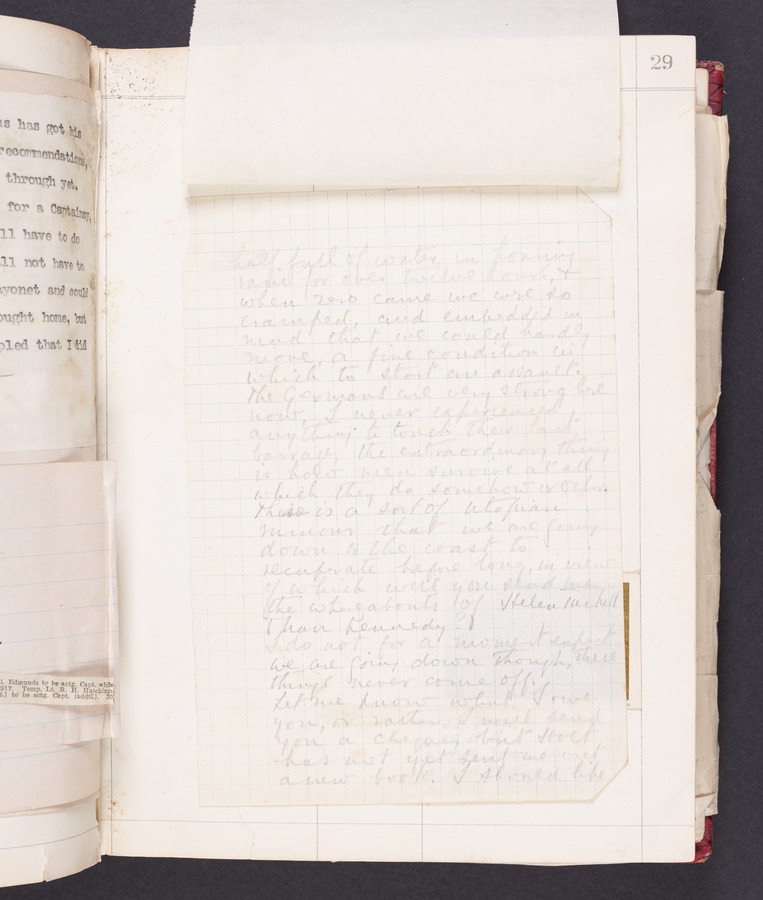 as has got his
recommendations,
through yet.
for a Captaincy,
ll have to do
ll not have to
ayonet and could
ought home, but
pled that I did
l. Edmunds to be actg. Capt. while
917. Temp. Lt. R. H. Hutchings
t.) to be actg. Capt. (addtl.). 20
29
half full of water, in pouring
rain for over twelve hours, &
when zero came we were so
cramped, and embedded in
mud that we could hardly
move, a fine condition in
which to start an assault.
The Germans are very strong here
now, I never experienced
anything to touch their last
barrage, the extraordinary thing
is how men survive at all
which they do somehow or other.
There is a sort of utopian
rumour that we are going
down to the coast to
recuperate before long, in view
of which will you send me
the whereabouts of Helen
Kennedy?
I do not for a moment expect
we are going down though, these
things never come off.
Let me know what I owe
you, or rather I will send
you a cheque, but
has not yet sent me out
a new book. I should like